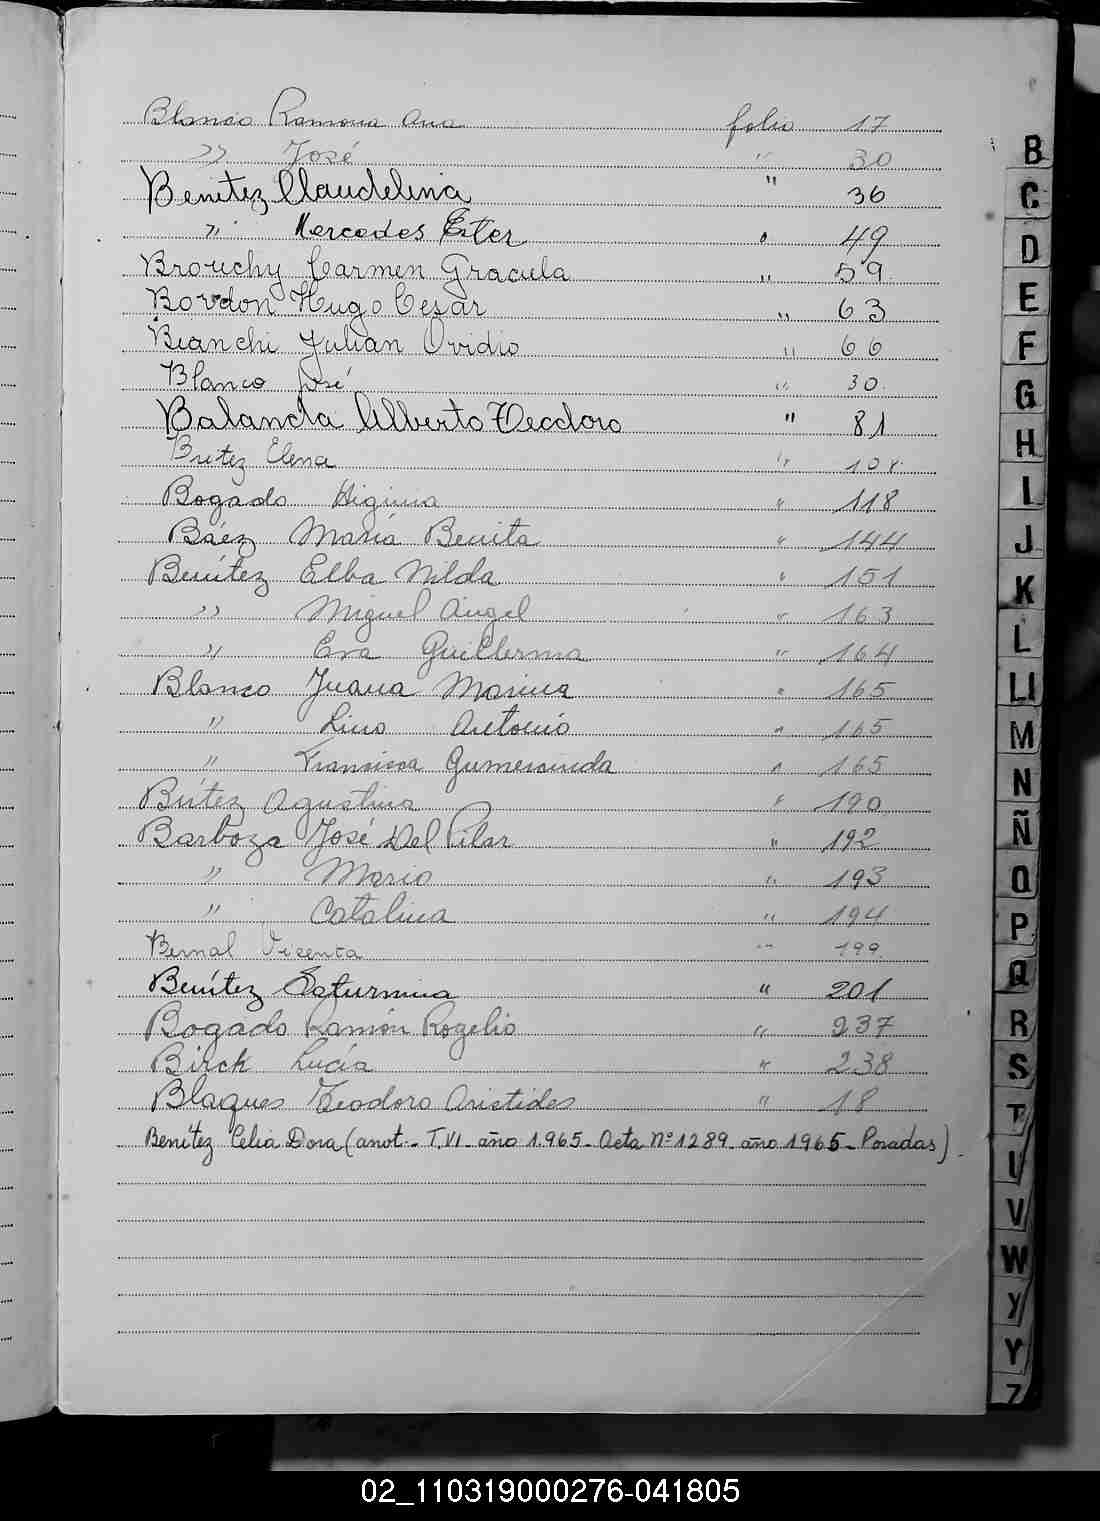 Blanco Ramona Ana folio 17
" José " 30
Benitez Claudelina " 36
" Mercedes Ester " 49
Brouchy Carmen Graciela " 59
Bordon Hugo Cesar " 63
Bianchi Julian Ovidio " 66
Blanco José " 30
Balancla Alberto Teodoro " 81
Britez Elena " 108
Bogado Higinia " 118
Báez María Benita " 144
Benítez Elba Nilda " 151
" Miguel Angel " 163
" Eva Guillerma " 164
Blanco Juana Marina " 165
" Lino Antonio " 165
" Francisca Gumercinda " 165
Brítez Agustina " 190
Barboza José Del Pilar " 192
" Mario " 193
" Catalina " 194
Bernal Vicenta " 199
Benítez Saturnina " 201
Bogado Ramón Rogelio " 237
Birck Lucía " 238
Blaques Teodoro Aristides " 18
Benítez Celia Dora (anot.- T.VI- año 1.965- Acta Nº 1289- año 1965- Posadas)
B
C
D
E
F
G
H
I
J
K
L
Ll
M
N
Ñ
O
P
Q
R
S
T
U
V
W
Y
Z
02_110319000276-041805